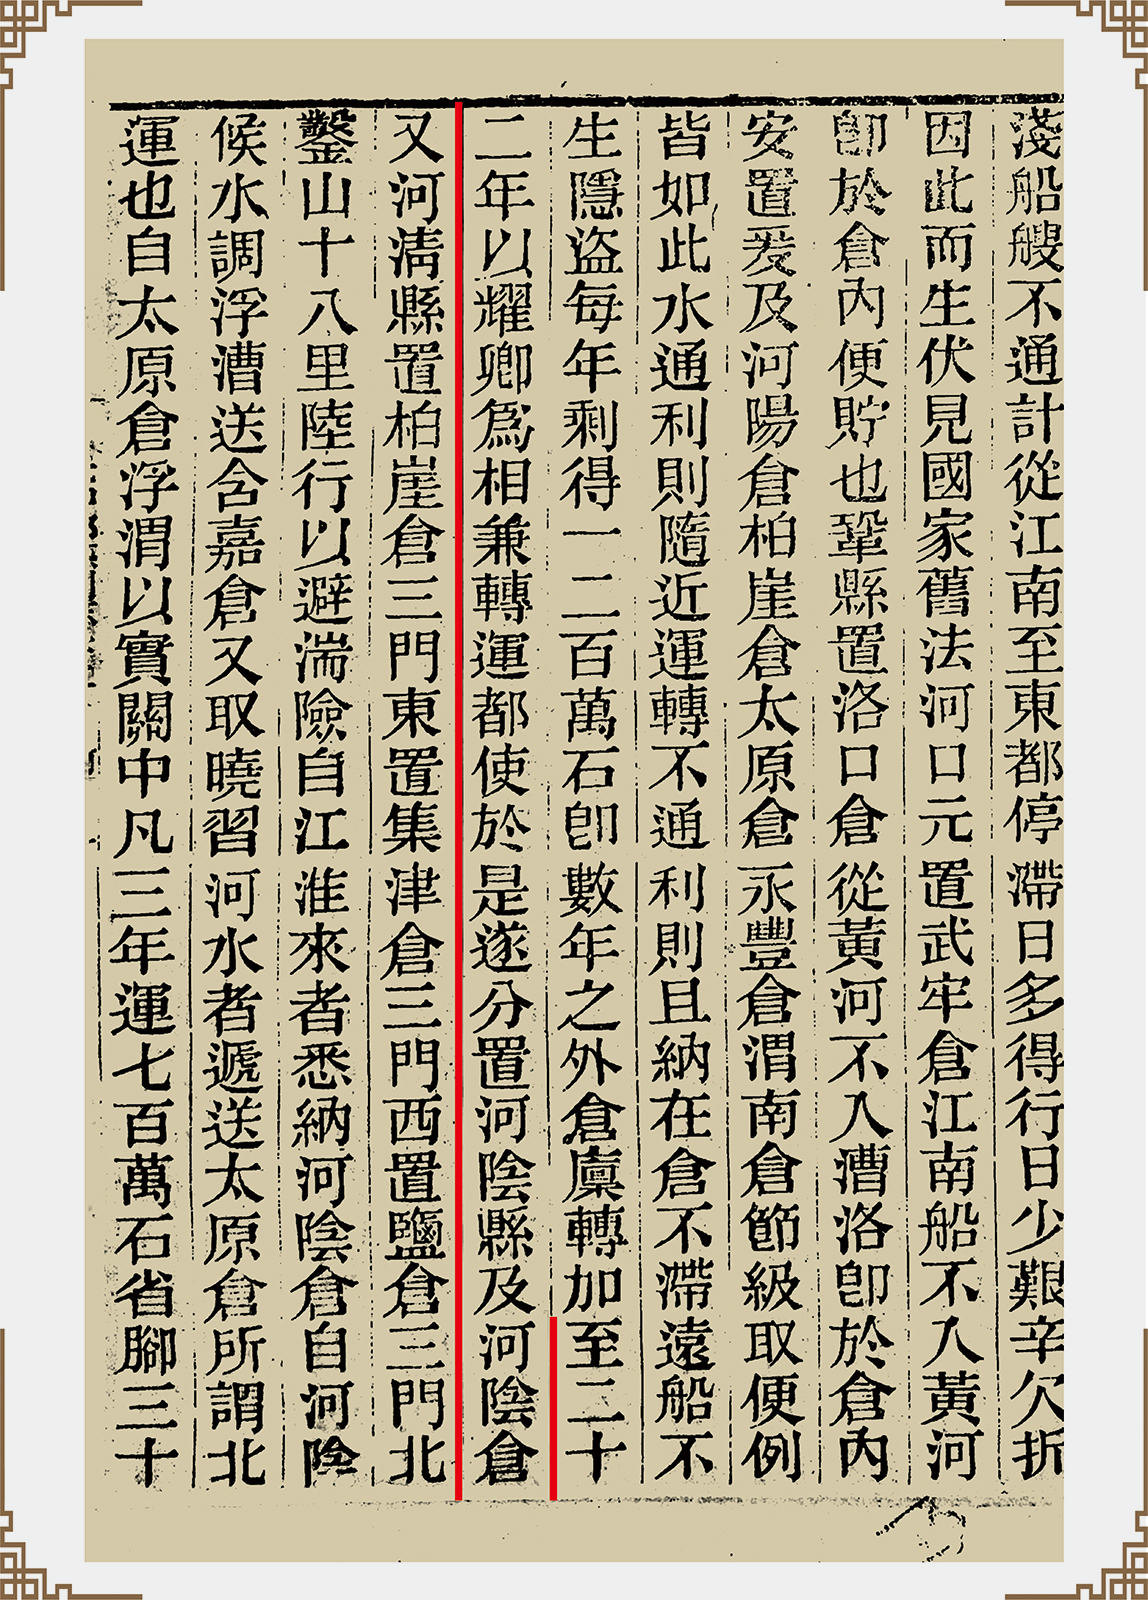 淺船艘不通計從江南至東都停滯日多得行日少艱辛欠折
因此而生伏見國家舊法河口元置武牢倉江南船不入黃河
卽於倉內便貯也鞏縣置洛口倉從黃河不入漕洛卽於倉內
安置爰及河陽倉柏崖倉太原倉永豐倉渭南倉節級取便例
皆如此水通利則隨近運轉不通利則且納在倉不滯遠船不
生隱盜每年剩得一二百萬石卽數年之外倉廩轉加至二十
二年以耀卿爲相兼轉運都使於是遂分置河陰縣及河陰倉
又河淸縣置柏崖倉三門東置集津倉三門西置鹽倉三門北
鑿山十八里陸行以避湍險自江淮來者悉納河陰倉自河陰
候水調浮漕送含嘉倉又取曉習河水者遞送太原倉所謂北
運也自太原倉浮渭以實關中凡三年運七百萬石省腳三十